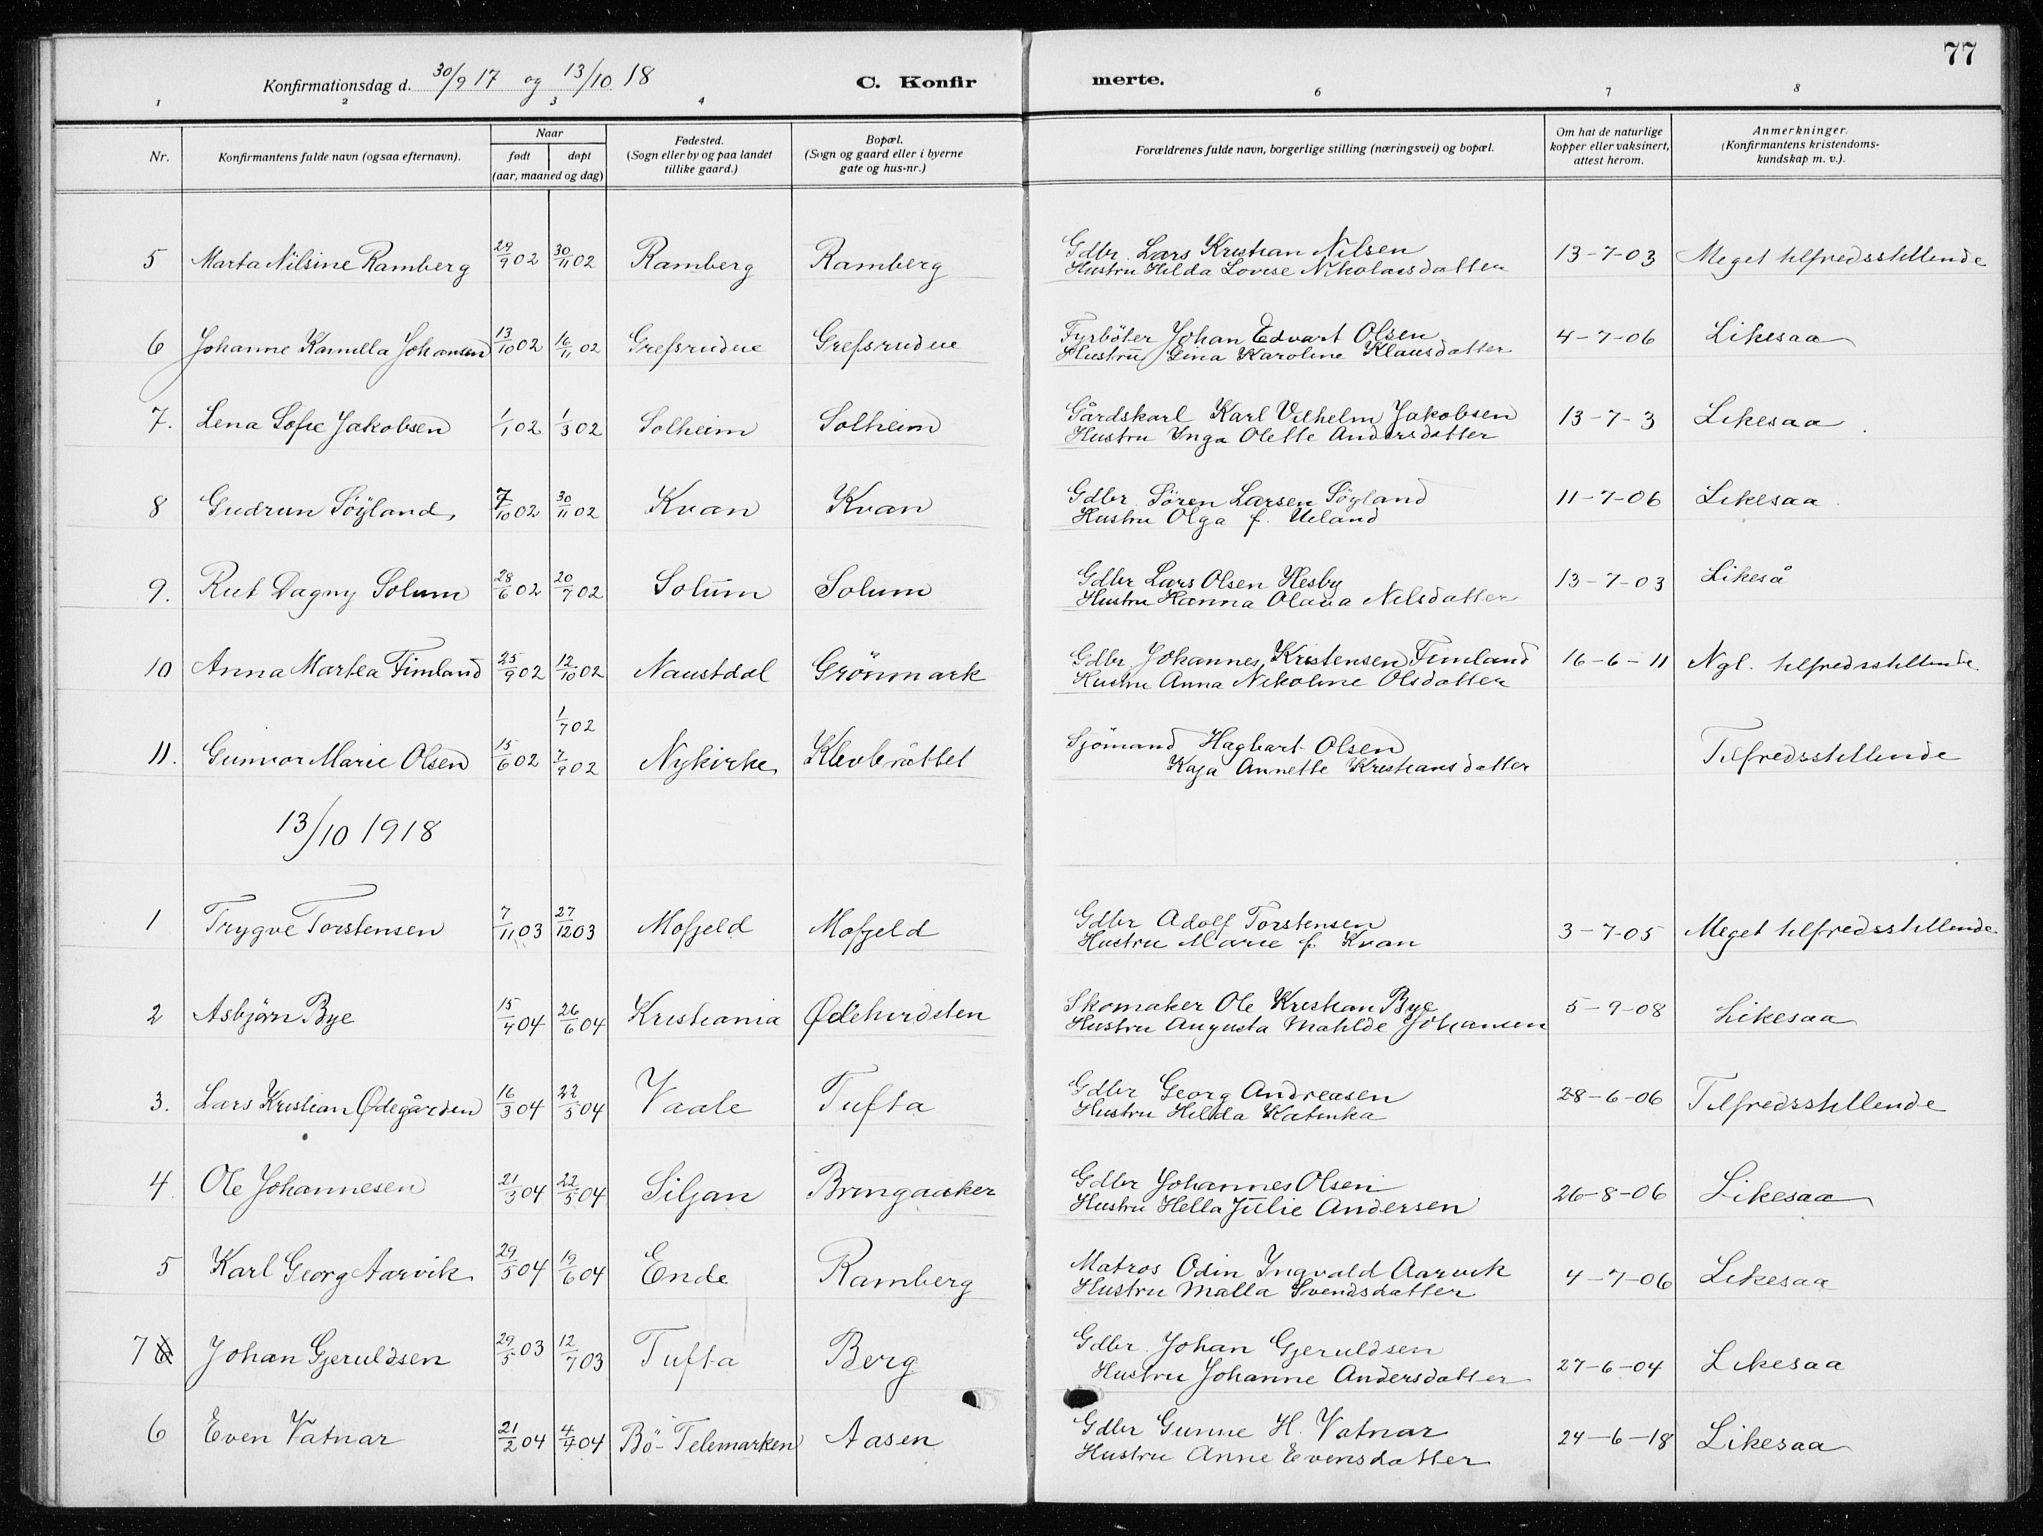 77
Konfirmationsdag d. 30/9 17 og 13/10 18 C. Konfir merte.
1 2 3 4 6 7 8
Nr. Konfirmantens fulde navn (ogsaa efternavn). Naar født døpt (aar, maaned og dag) Fødested. (Sogn eller by og paa landet tillike gaard.) Bopæl. (Sogn og gaard eller i byerne gate og hus-nr.) Forældrenes fulde navn, borgerlige stilling (næringsvei) og bopæl. Om hat de naturlige kopper eller vaksinert, attest herom. Anmerkninger. (Konfirmantens kristendoms-kundskap m. v.).
5 Marta Nilsine Ramberg 29/9 02 30/11 02 Ramberg Ramberg Gdbr. Lars Kristian Nilsen 13-7-03 Meget tilfredsstillende
Hustru Hilda Lovise Nikolaisdatter
6 Johanne Kamilla Johansen 13/10 02 16/11 02 Grefsrudeie Grefsrudeie Fyrböter Johan Edvart Olsen 4-7-06 Likesaa
Hustru Gina Karoline Klausdatter
7. Lena Sofie Jakobsen 1/1 02 1/3 02 Solheim Solheim Gårdskarl Karl Vilhelm Jakobsen 13-7-3 Likesaa
Hustru Inga Olette Andersdatter
8 Gudrun Söyland 7/10 02 30/11 02 Kvan Kvan Gdbr. Sören Larsen Söyland 11-7-06 Likesaa
Hustru Olga f. Ueland
9. Rut Dagny Solum 28/6 02 20/7 02 Solum Solum Gdbr Lars Olsen Hesby 13-7-03 Likeså
Hustru Hanna Olava Nilsdatter
10 Anna Martea Fimland 25/9 02 12/10 02 Naustdal Grönmark Gdbr. Johannes Kristensen Fimland 16-6-11 Ngl. tilfredsstillende
Hustru Anna Nikoline Olsdatter
1/7 02
11. Gunvor Marie Olsen 15/6 02 7/9 02 Nykirke Klevbråttet Sjömand Hagbart Olsen Tilfredsstillende
Kaja Annette Kristiansdatter
13/10 1918
1 Trygve Torstensen 7/11 03 27/12 03 Mofjeld Mofjeld Gdbr Adolf Torstensen 3-7-05 Meget tilfredsstillende
Hustru Marie f. Kvan
2 Asbjörn Bye 15/4 04 26/6 04 Kristiania Ødehvidsten Skomaker Ole Kristian Bye 5-9-08 Likesaa
Hustru Augusta Matilde Johansen
3. Lars Kristian Ødegården 16/3 04 22/5 04 Vaale Tufta Gdbr Georg Andreasen 28-6-06 Tilfredsstillende
Hustru Hilda Katinka
4. Ole Johannesen 21/3 04 22/5 04 Siljan Bringaaker Gdbr Johannes Olsen 26-8-06 Likesaa
Hustru Hella Julie Andersen
5 Karl Georg Aarvik 29/5 04 19/6 04 Ende Ramberg Matros Odin Ingvald Aarvik 4-7-06 Likesaa
Hustru Malla Svendsdatter
7 6 Johan Gjeruldsen 29/5 03 12/7 03 Tufta Berg Gdbr. Johan Gjeruldsen 27-6-04 Likesaa
Hustru Johanne Andersdatter
6 Even Vatnar 21/2 04 4/4 04 Bö-Telemarken Aasen Gdbr Gunne H. Vatnar 24-6-18 Likesaa
Hustru Anne Evensdatter